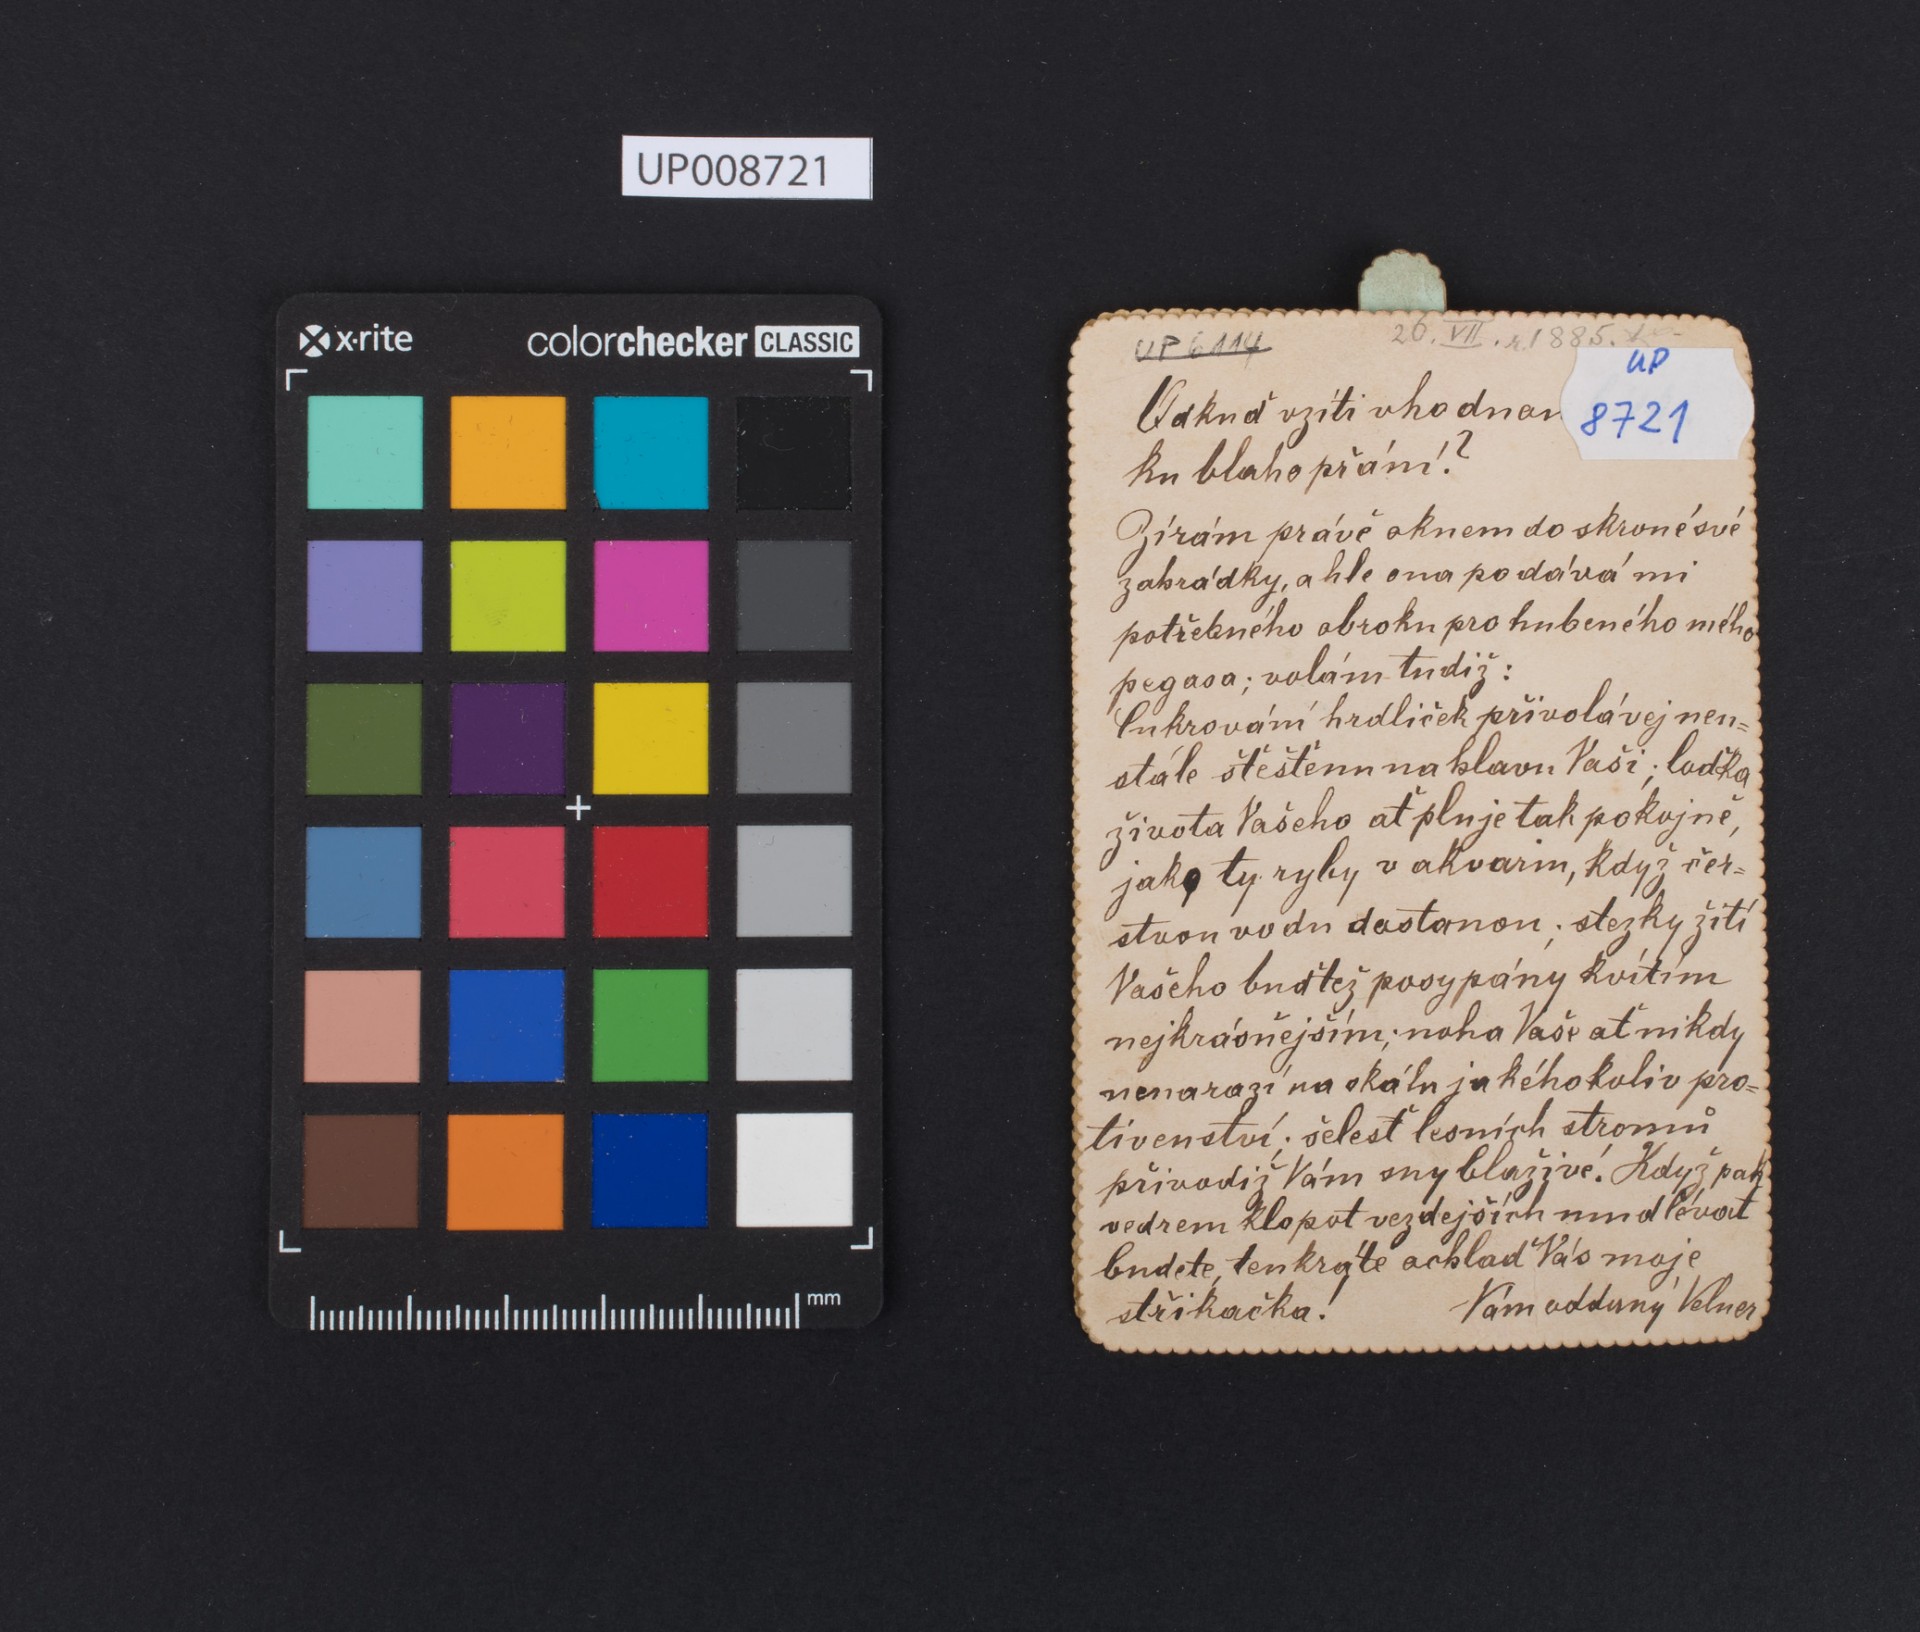 UP008721
x·rite
colorchecker CLASSIC
mm
UP 6114
26. VII. r. 1885.
UP
8721
Odkuď vzíti vhodnou
ku blahopřání!?
Zírám právě oknem do skrovné své
zahrádky, a hle ona podává mi
potřebného obroku pro hubeného mého
pegasa; volám tudiž:
Cukrování hrdliček přivolávej neu=
stále štěstěnu na hlavu Vaši; loďka
života Vašeho ať pluje tak pokojně,
jako ty ryby v akvariu, když čer=
stvou vodu dostanou; stezky žití
Vašeho buďtež posypány kvítím
nejkrásnějším; noha Vaše ať nikdy
nenarazí na skálu jakéhokoliv pro=
tivenství; šelest lesních stromů
přivodiž Vám sny blaživé! Když pak
vedrem klopot vezdejších umdlévat
budete, tenkráte ochlaď Vás moje
střikačka!
Vám oddaný Velner